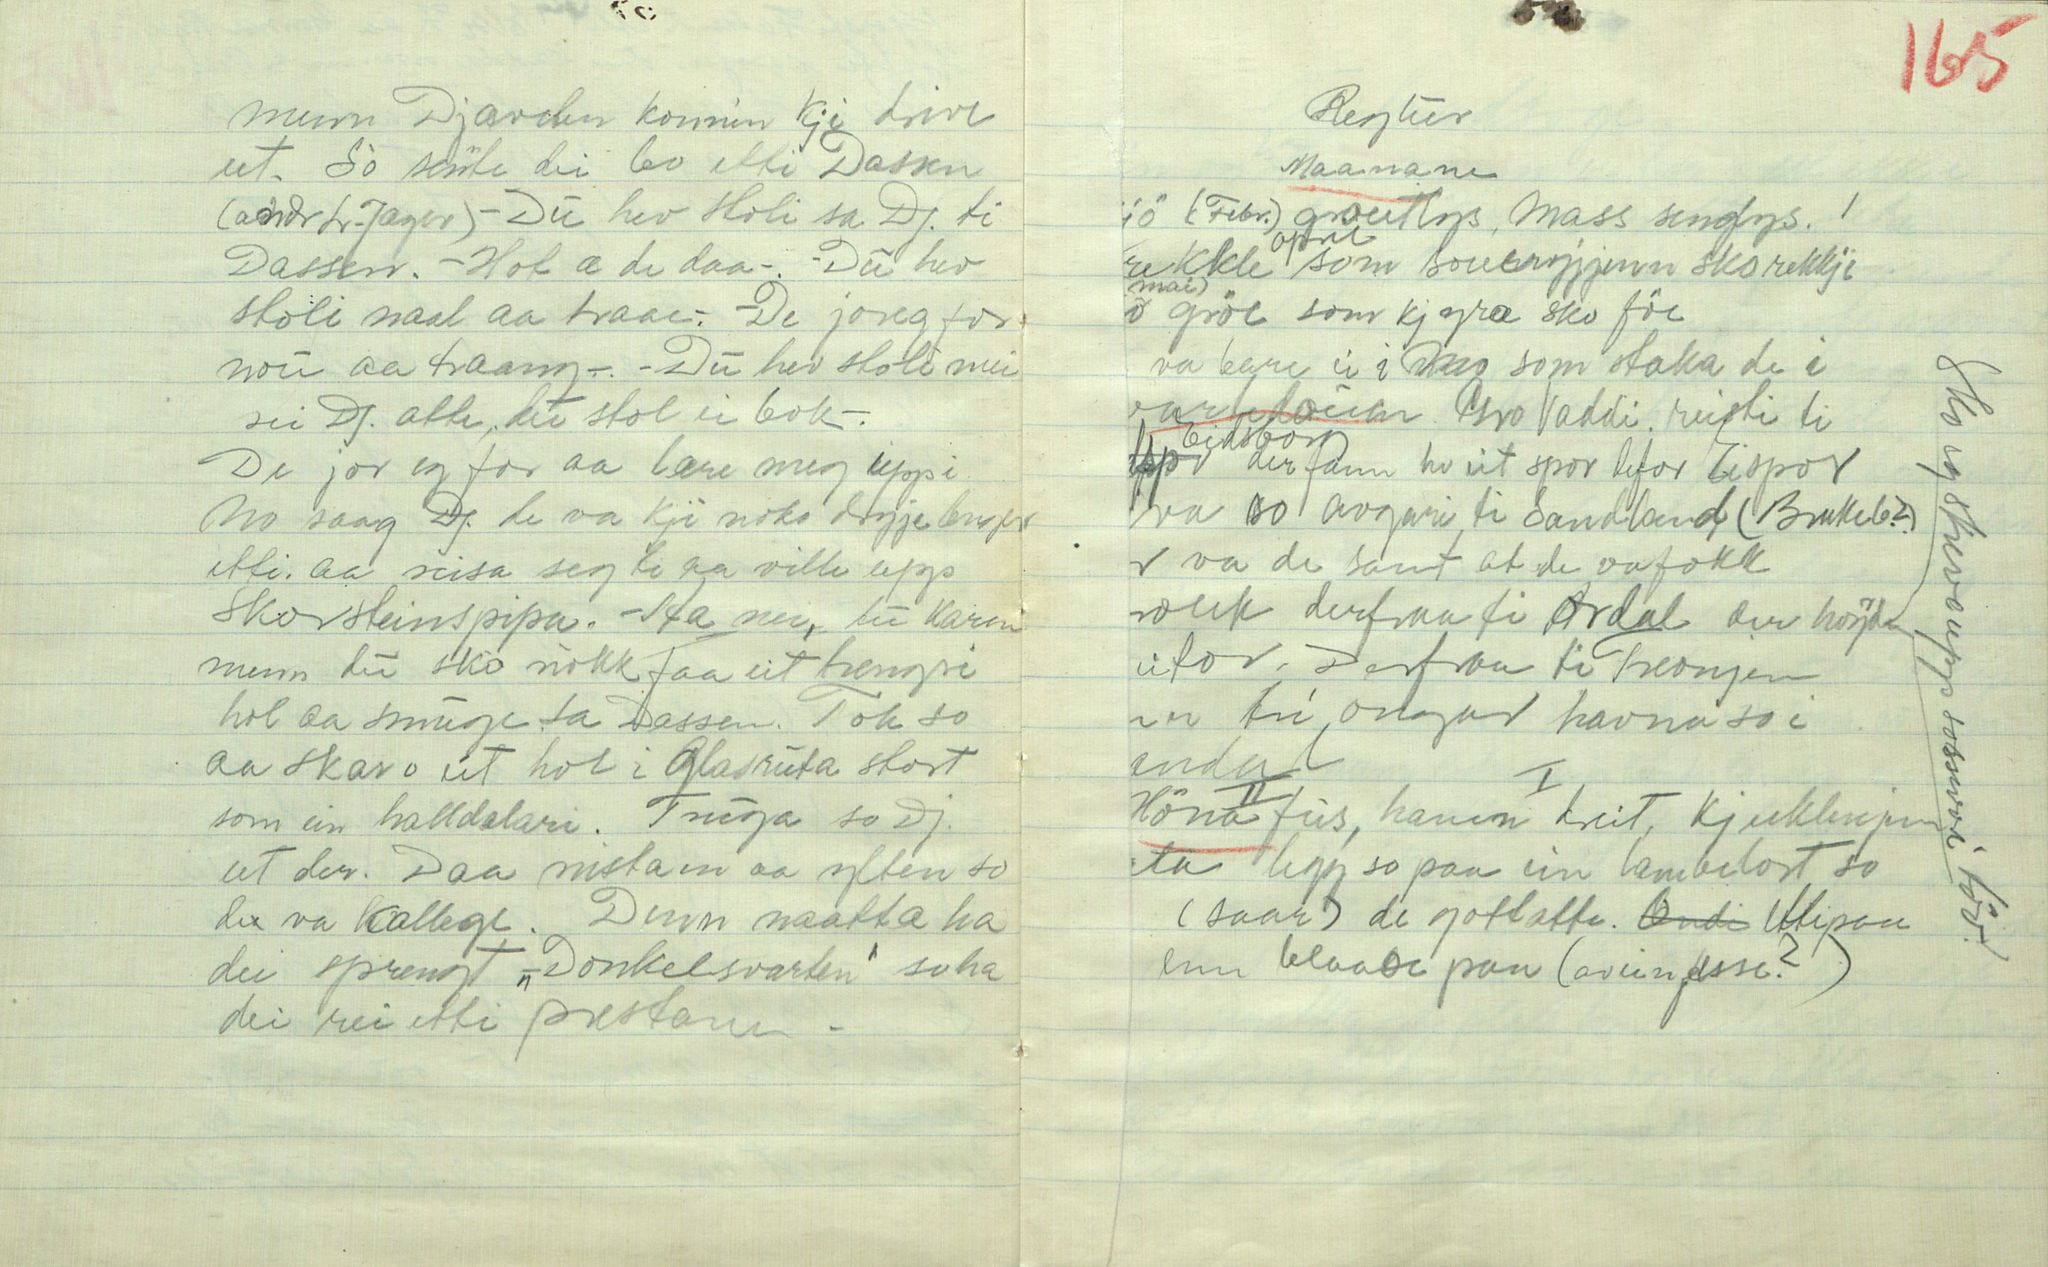 menn Djævelen konnin kji drive
ut. So sente dei bo etti Dassen
Dū hev stoli sa Dj. ti
Dassen. - Hot æ de daa -. - Dū hev
stoli naal aa traae -. - De joreg for
noū aa traang -. - Dū hev stoli mei
sei Dj. atte, dū stol ei bok -.
De jor eg for aa lære meg ūppi
No saag Dj. de va kji noko drygje lenger
etti. aa reisa seg te aa ville upp
Skorsteinspipa. - Sta nei, dū karen
menn dū sko nokk faa eit trengri
hol aa smūge sa Dassen. Tok so
aa skavo eit hol i Glasrūta stort
som ein halldalari. Trūga so Dj.
ut der. Daa rista en aa ylten so
de va kallege. Denn naatta ha
dei sprengt „Donkelsvarten" so ha
dei rei etti prestann -
165
Regler
Maanane
jö (Febr.) grautlys, Mass senglys. !
april
rekkle som soueryggjenn sko rekkje
(mai)
ö gröe som kjyræ sko föe
va bere ei i Mo som staka de i
Gro Vaddi reisti ti
Eidsborg
der fann ho eit spor defor Eispor
va so avgari ti Sandland (Brukeb?)
r va de sant at de va fokk
derfraa ti Ardal der högde
utor. Derfraa ti Treongen
tri ongar havna so i
I
II
Höna fūs, hanen treit, kjuklingen
ta legg so paa ein lambelort so
(saar) de gotlatte. Ondi Uttipaa
enn blaase paa (aveinesse?)
Sko eg skreva upp sosnori tör!